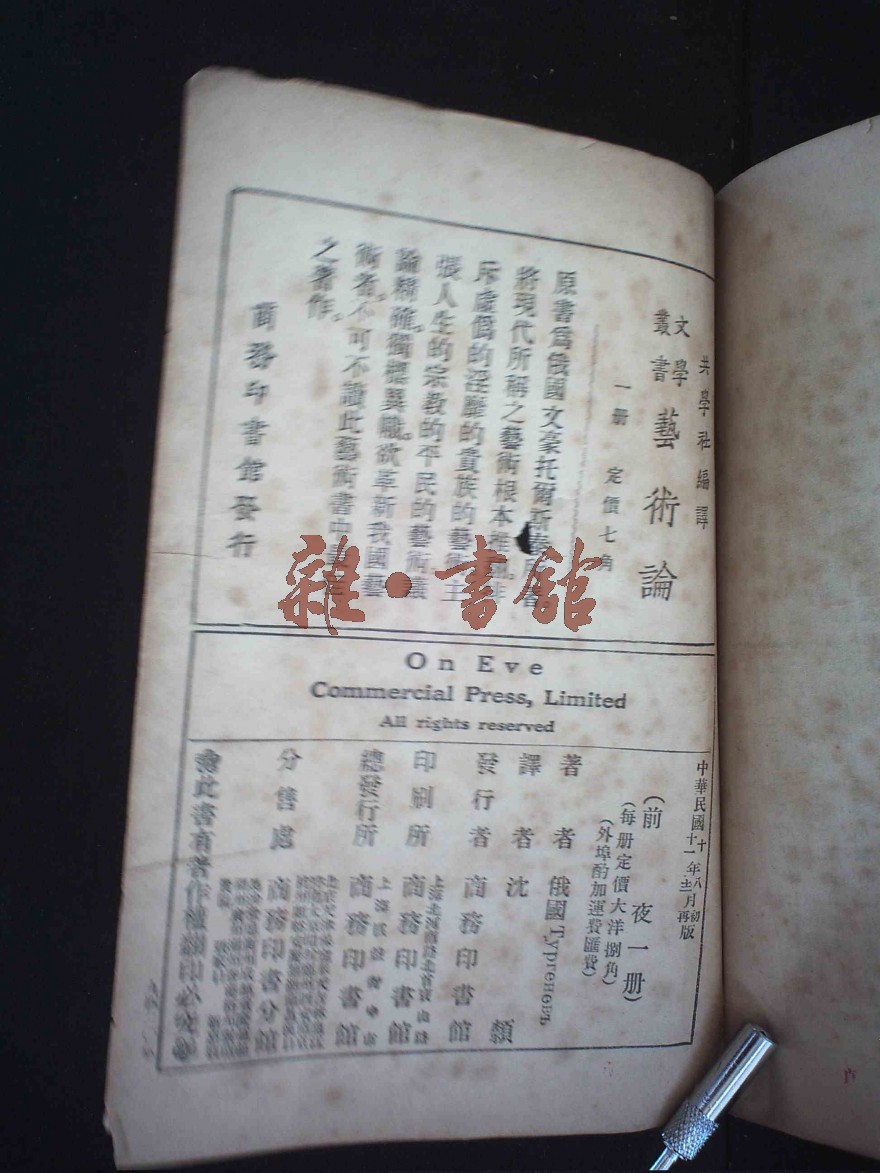 共學社編譯
文學
叢書
藝術論
一册 定價七角
原書爲俄國文豪托爾斯
將現代所稱之藝術根本推翻。非
斥虛僞的淫靡的貴族的藝術主
張人生的宗教的平民的藝術議
論精確。獨標異幟。欲革新我國藝
術者。不可不讀此藝術書中
之著作。
商務印書館發行
雜·書館
On Eve
Commercial Press, Limited
All rights reserved
中華民國
十年八月初版
十一年十二月再版
(前夜一册)
(每册定價大洋捌角)
(外埠酌加運費匯費)
著者 俄國 Тургеневъ
譯者 沈穎
發行者 商務印書館
印刷所 上海北河南路北首寶山路 商務印書館
總發行所 商務印書館
分售處 商務印書分館
此書有著作權翻印必究